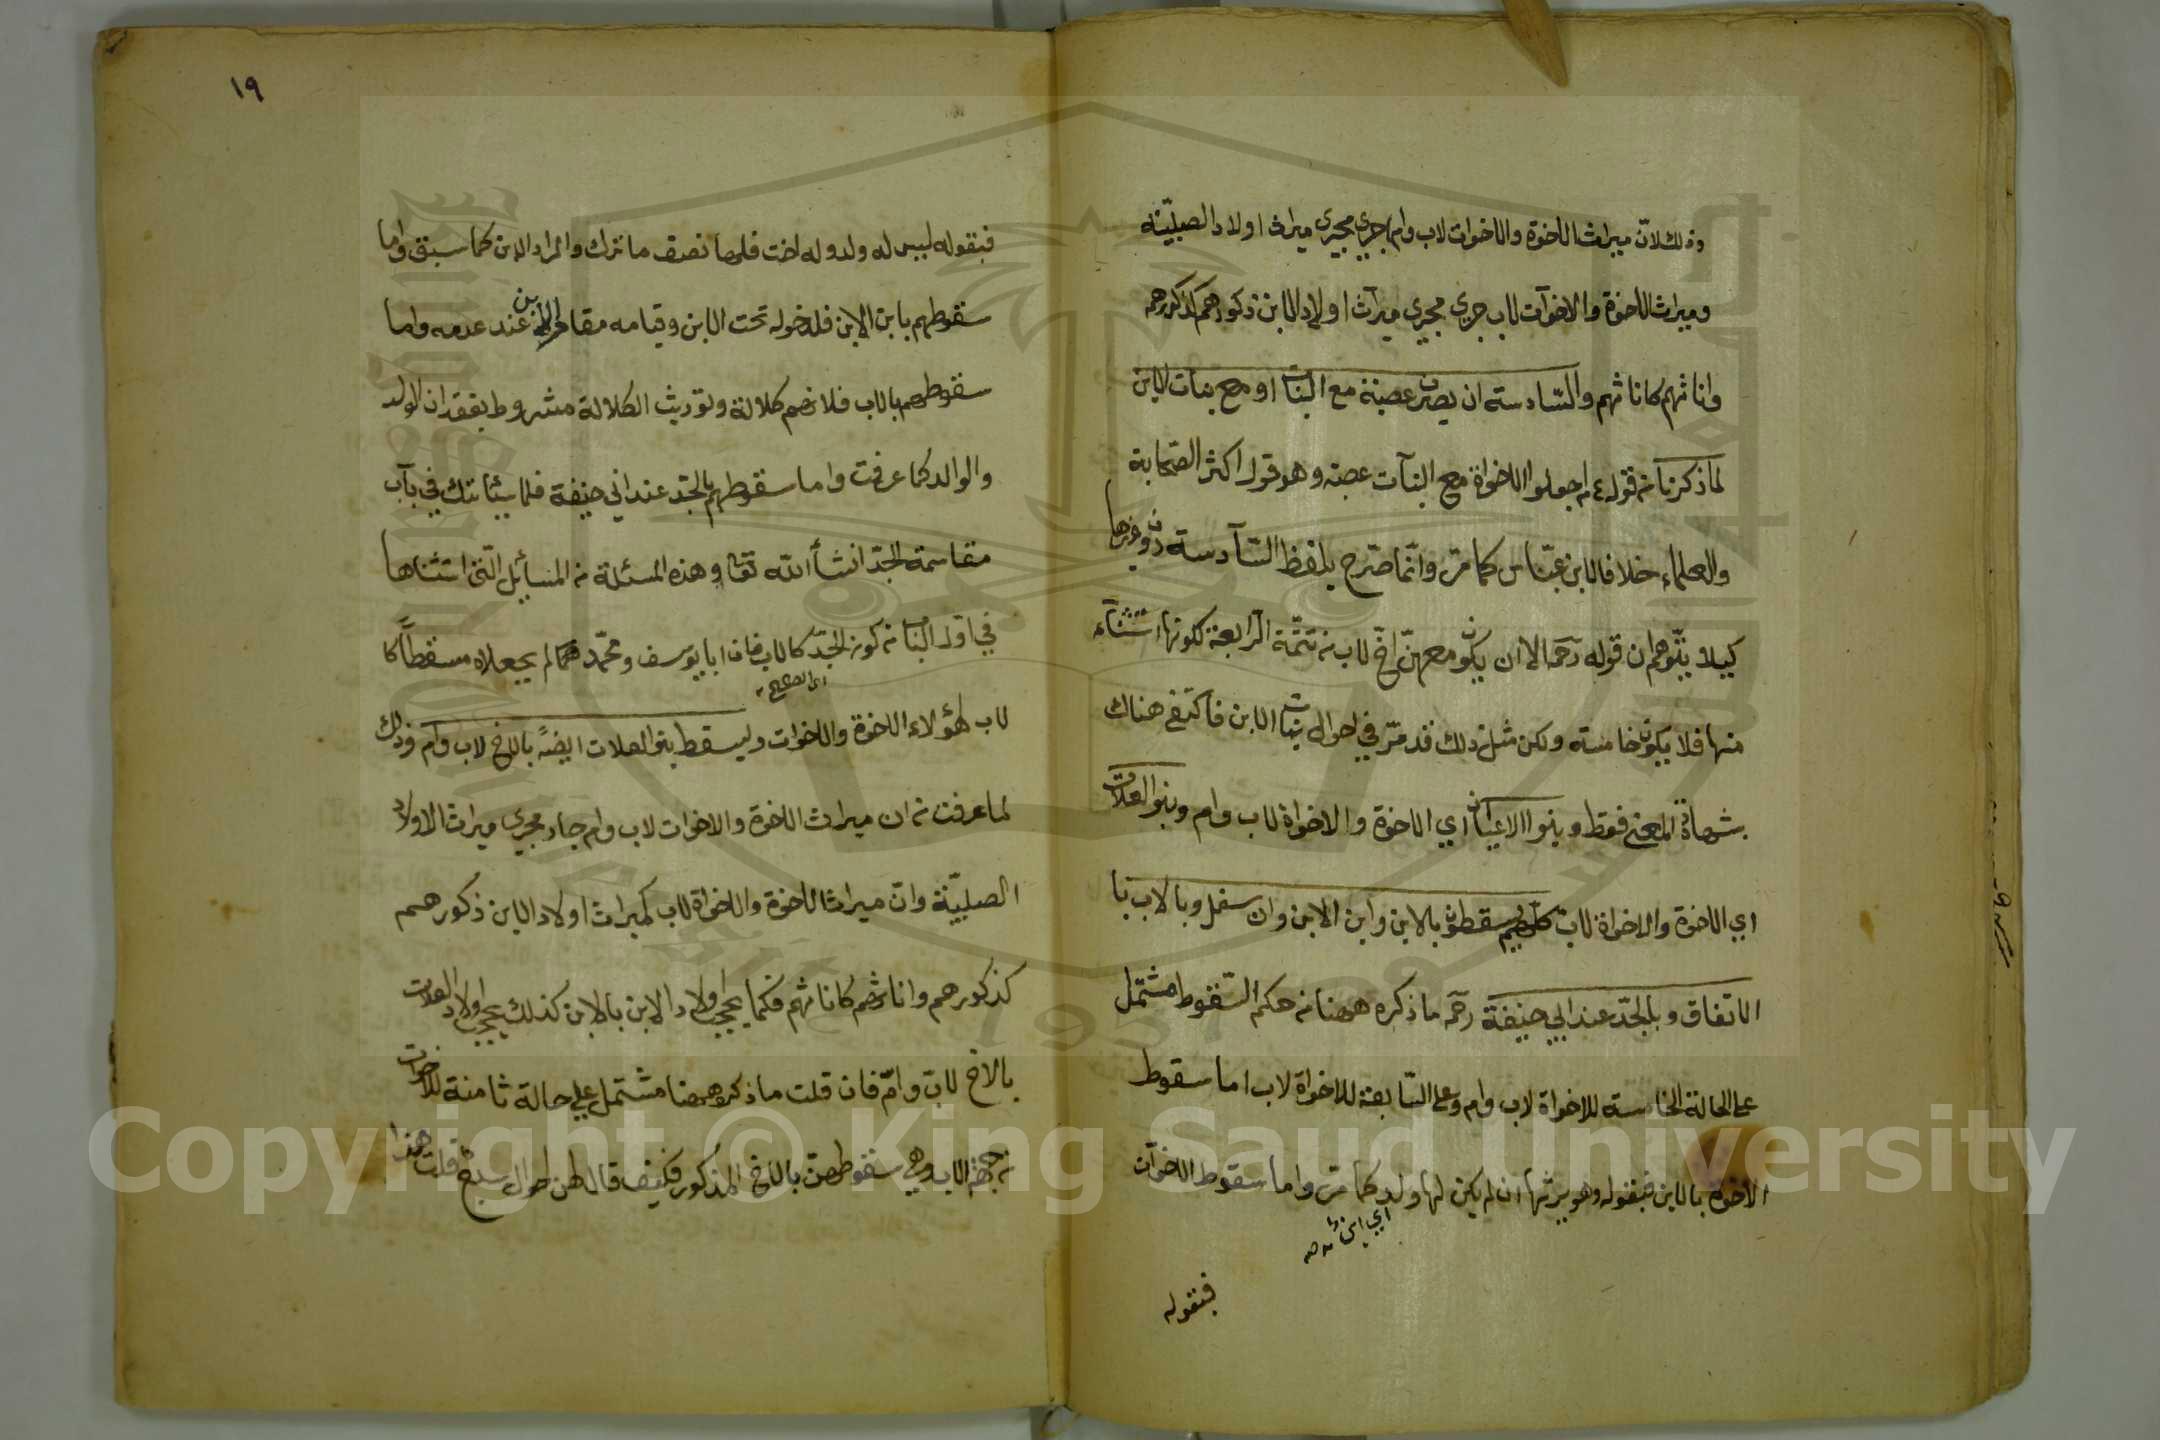 وذلك لانّ ميراث الاخوة والاخوات لاب وام جري مجري ميراث اولاد الصلبيّة
وميراث الاخوة والاخوات لاب جري مجري ميراث اولاد الابن ذكورهم كذكورهم
واناثهم كاناثهم والسّادسة ان يصرن عصبة مع البنات او مع بنات الابن
لما ذكرنا من قوله ع م اجعلوا الاخواة مع البنات عصبة وهو قول اكثر الصّحابة
والعلماء خلافا لابن عبّاس كما مرّ وانّما صرّح بلفظ السّادسة دون غيرها
كيلا يتّوهم ان قوله رحمه الا ان يكون معهنّ اخ لاب من تتمّة الرّابعة لكونها استثناء
منها فلا يكون خامسة ولكن مثل ذلك قد مرّ في احوال بنات الابن فاكتفي هناك
بشهادة المعني فقط وبنوا الاعيان اي الاخوة والاخواة لاب وام وبنو العلات
اي الاخوة والاخواة لاب كلهم يسقطون بالابن وابن الابن وان سفل وبالاب با
الاتفاق وبالجدّ عند ابي حنيفة رحمه ما ذكره ههنا من حكم السّقوط مشتمل
علي الحالة الخامسة للاخواة لاب وام وعلي السّابعة للاخواة لاب اما سقوط
الاخوة بالابن فبقوله وهو يرثها ان لم يكن لها ولد كما مرّ واما سقوط الاخوات
اي ابن
فبقوله
١٩
فبقوله ليس له ولد وله اخت فلها نصف ما ترك والمراد الابن كما سبق واما
سقوطهم بابن الابن فلدخوله تحت الابن وقيامه مقام الابن عند عدمه واما
سقوطهم بالاب فلانهم كلالة وتوريث الكلالة مشروط بفقدان الولد
والوالد كما عرفت واما سقوطهم بالجدّ عند ابي حنيفة فلما سيأتيك في باب
مقاسمة الجدّ انشأ اللّه تعا وهذه المسئلة من المسائل الّتي استثناها
في اوّل البنات من كون الجدّ كالاب فان ابا يوسف ومحمّد هما لم يجعلاه مسقطا كا
اي الصحيح
لاب لهؤلاء الاخوة والاخوات ويسقط بنو العلات ايضًا بالاخ لاب وام وذلك
لما عرفت من ان ميراث الاخوة والاخوات لاب وام جار مجري ميراث الاولاد
الصلبيّة وان ميراث الاخوة والاخواة لاب كميراث اولاد الابن ذكورهم
كذكورهم واناثهم كاناثهم فكما يحجب اولاد الابن بالابن كذلك يحجب اولاد العلات
بالاخ لاب وامّ فان قلت ما ذكره ههنا مشتمل علي حالة ثامنة للاخوات
من جهة الاب وهي سقوطهنّ بالاخ المذكور فكيف قال لهن احوال سبع قلت هذا